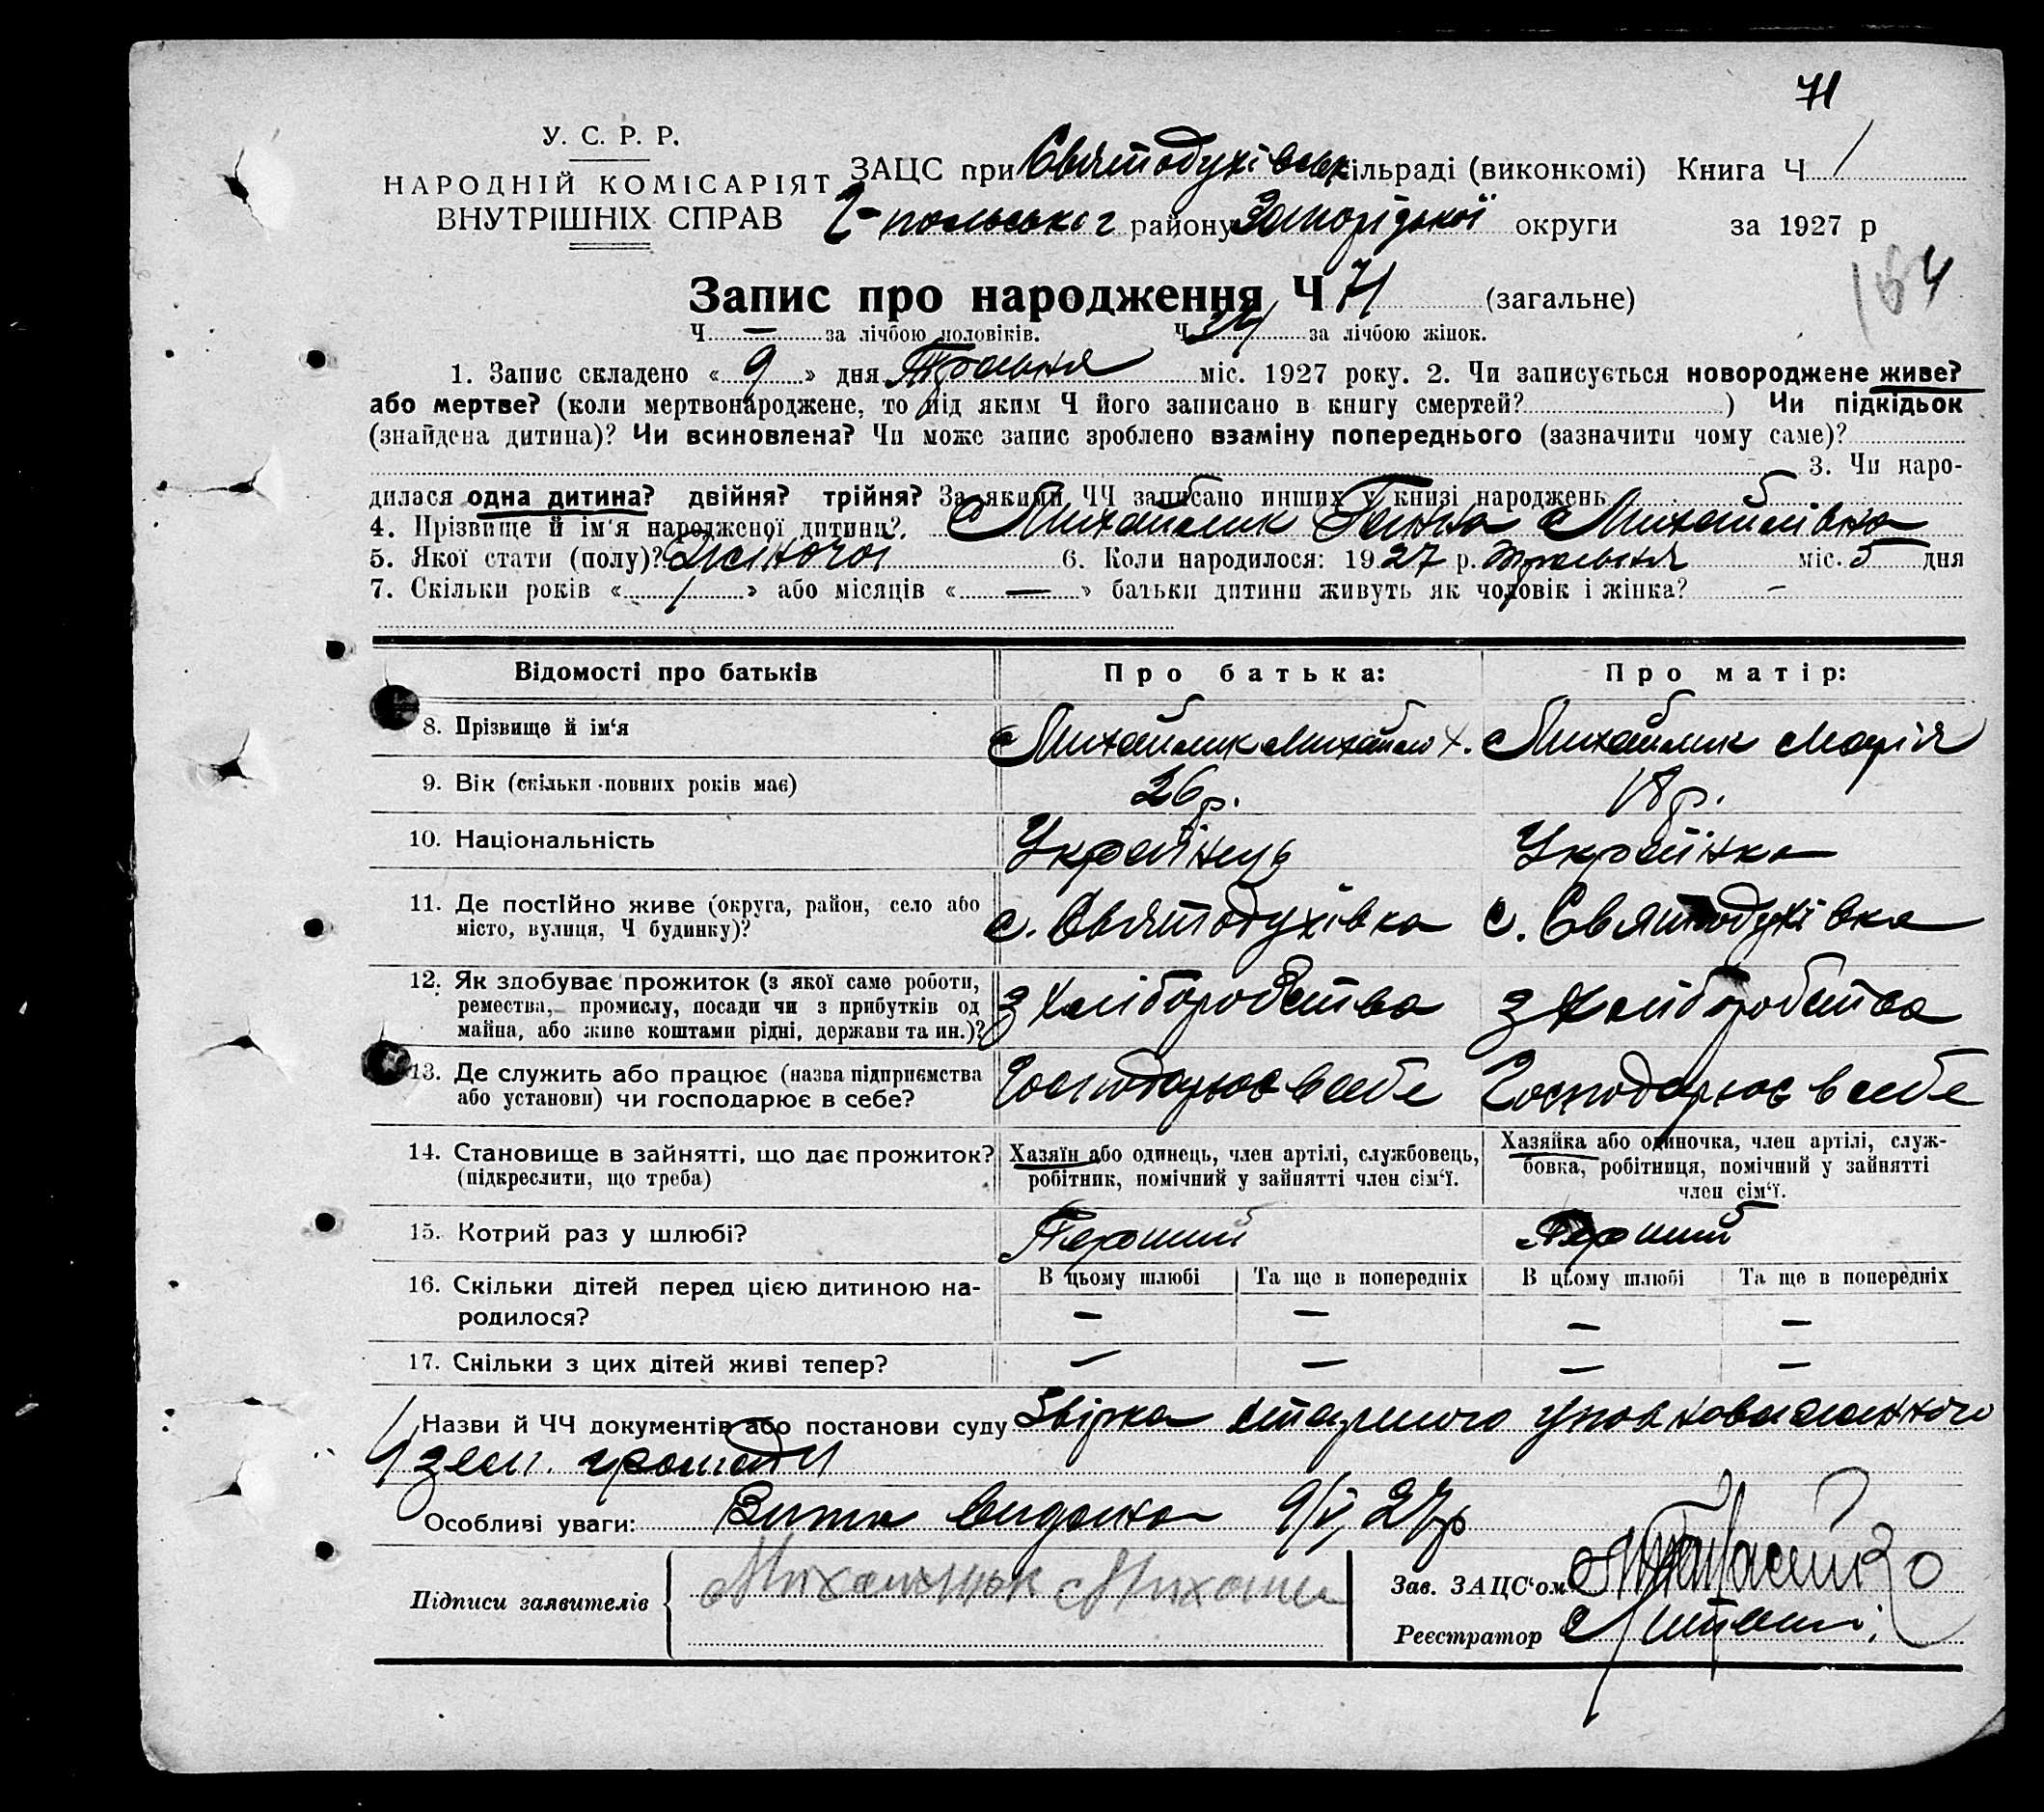 71
У. С. Р. Р.
НАРОДНІЙ КОМІСАРІЯТ
ВНУТРІШНІХ СПРАВ
ЗАЦС при Святодухівськ. сільраді (виконкомі) Книга Ч 1
Г-польськ району Запорізької округи за 1927 р
164
Запис про народження Ч 71 (загальне)
Ч — за лічбою чоловіків. Ч 34 за лічбою жінок.
1. Запис складено «9» дня Травня міс. 1927 року. 2. Чи записується новороджене живе?
або мертве? (коли мертвонароджене, то під яким Ч його записано в книгу смертей? ) Чи підкідьок
(знайдена дитина)? Чи всиновлена? Чи може запис зроблено взаміну попереднього (зазначити чому саме)?
3. Чи наро-
дилася одна дитина? двійня? трійня? За якими ЧЧ записано инших у книзі народжень
4. Прізвище й ім'я народженої дитини? Михайлик Ганна Михайлівна
5. Якої стати (полу)? Жіночої 6. Коли народилося: 1927 р. травня міс. 5 дня
7. Скільки років «1» або місяців «—» батьки дитини живуть як чоловік і жінка? —
Відомості про батьків Про батька: Про матір:
8. Прізвище й ім'я Михайлик Михайло Х. Михайлик Марія
9. Вік (скільки повних років має) 26 р. 18 р.
10. Національність Українець Українка
11. Де постійно живе (округа, район, село або
місто, вулиця, Ч будинку)? с. Святодухівка с. Святодухівка
12. Як здобуває прожиток (з якої саме роботи,
ремества, промислу, посади чи з прибутків од
майна, або живе коштами рідні, держави та ин.)? з хліборобства з хліборобства
13. Де служить або працює (назва підприємства
або установи) чи господарює в себе? Господарює в себе Господарює в себе
14. Становище в зайнятті, що дає прожиток?
(підкреслити, що треба)
Хазяїн або одинець, член артілі, службовець,
робітник, помічний у зайнятті член сім'ї.
Хазяйка або одиночка, член артілі, служ-
бовка, робітниця, помічний у зайнятті
член сім'ї.
15. Котрий раз у шлюбі? Перший Перший
16. Скільки дітей перед цією дитиною на-
родилося?
В цьому шлюбі Та ще в попередніх В цьому шлюбі Та ще в попередніх
— — — —
17. Скільки з цих дітей живі тепер? — — — —
Назви й ЧЧ документів або постанови суду Звірка старшого уповноваженного
зем. громади
Особливі уваги: Витяг видано 9/V 27р
Підписи заявителів Михайлик Михайло
Зав. ЗАЦС'ом
Реєстратор